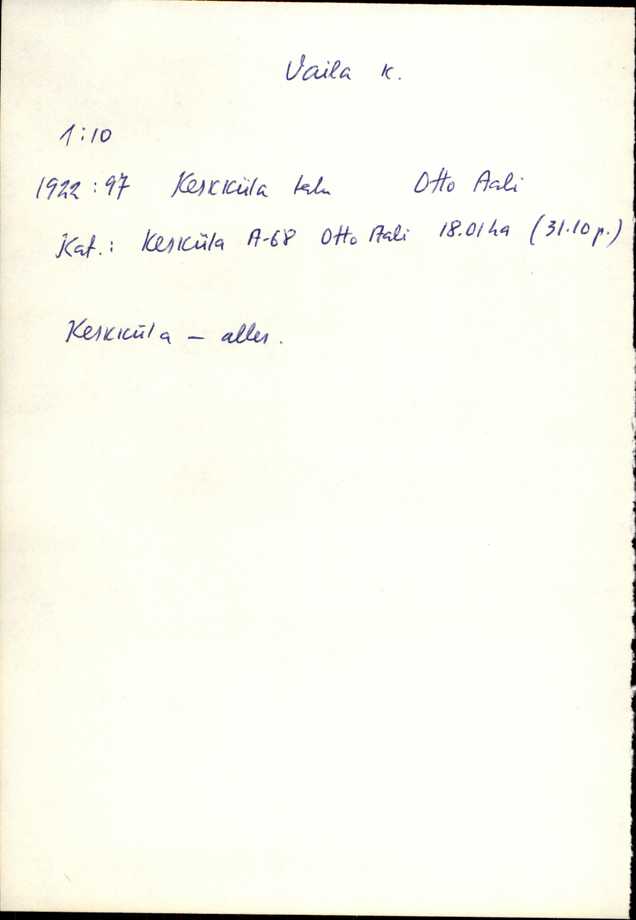 Vaila k.
1:10
1922:97 Keskküla talu Otto Aali
Kat.: Kesküla A-68 Otto Aali 18.01ha (31.10 p.)
Keskküla – alles.